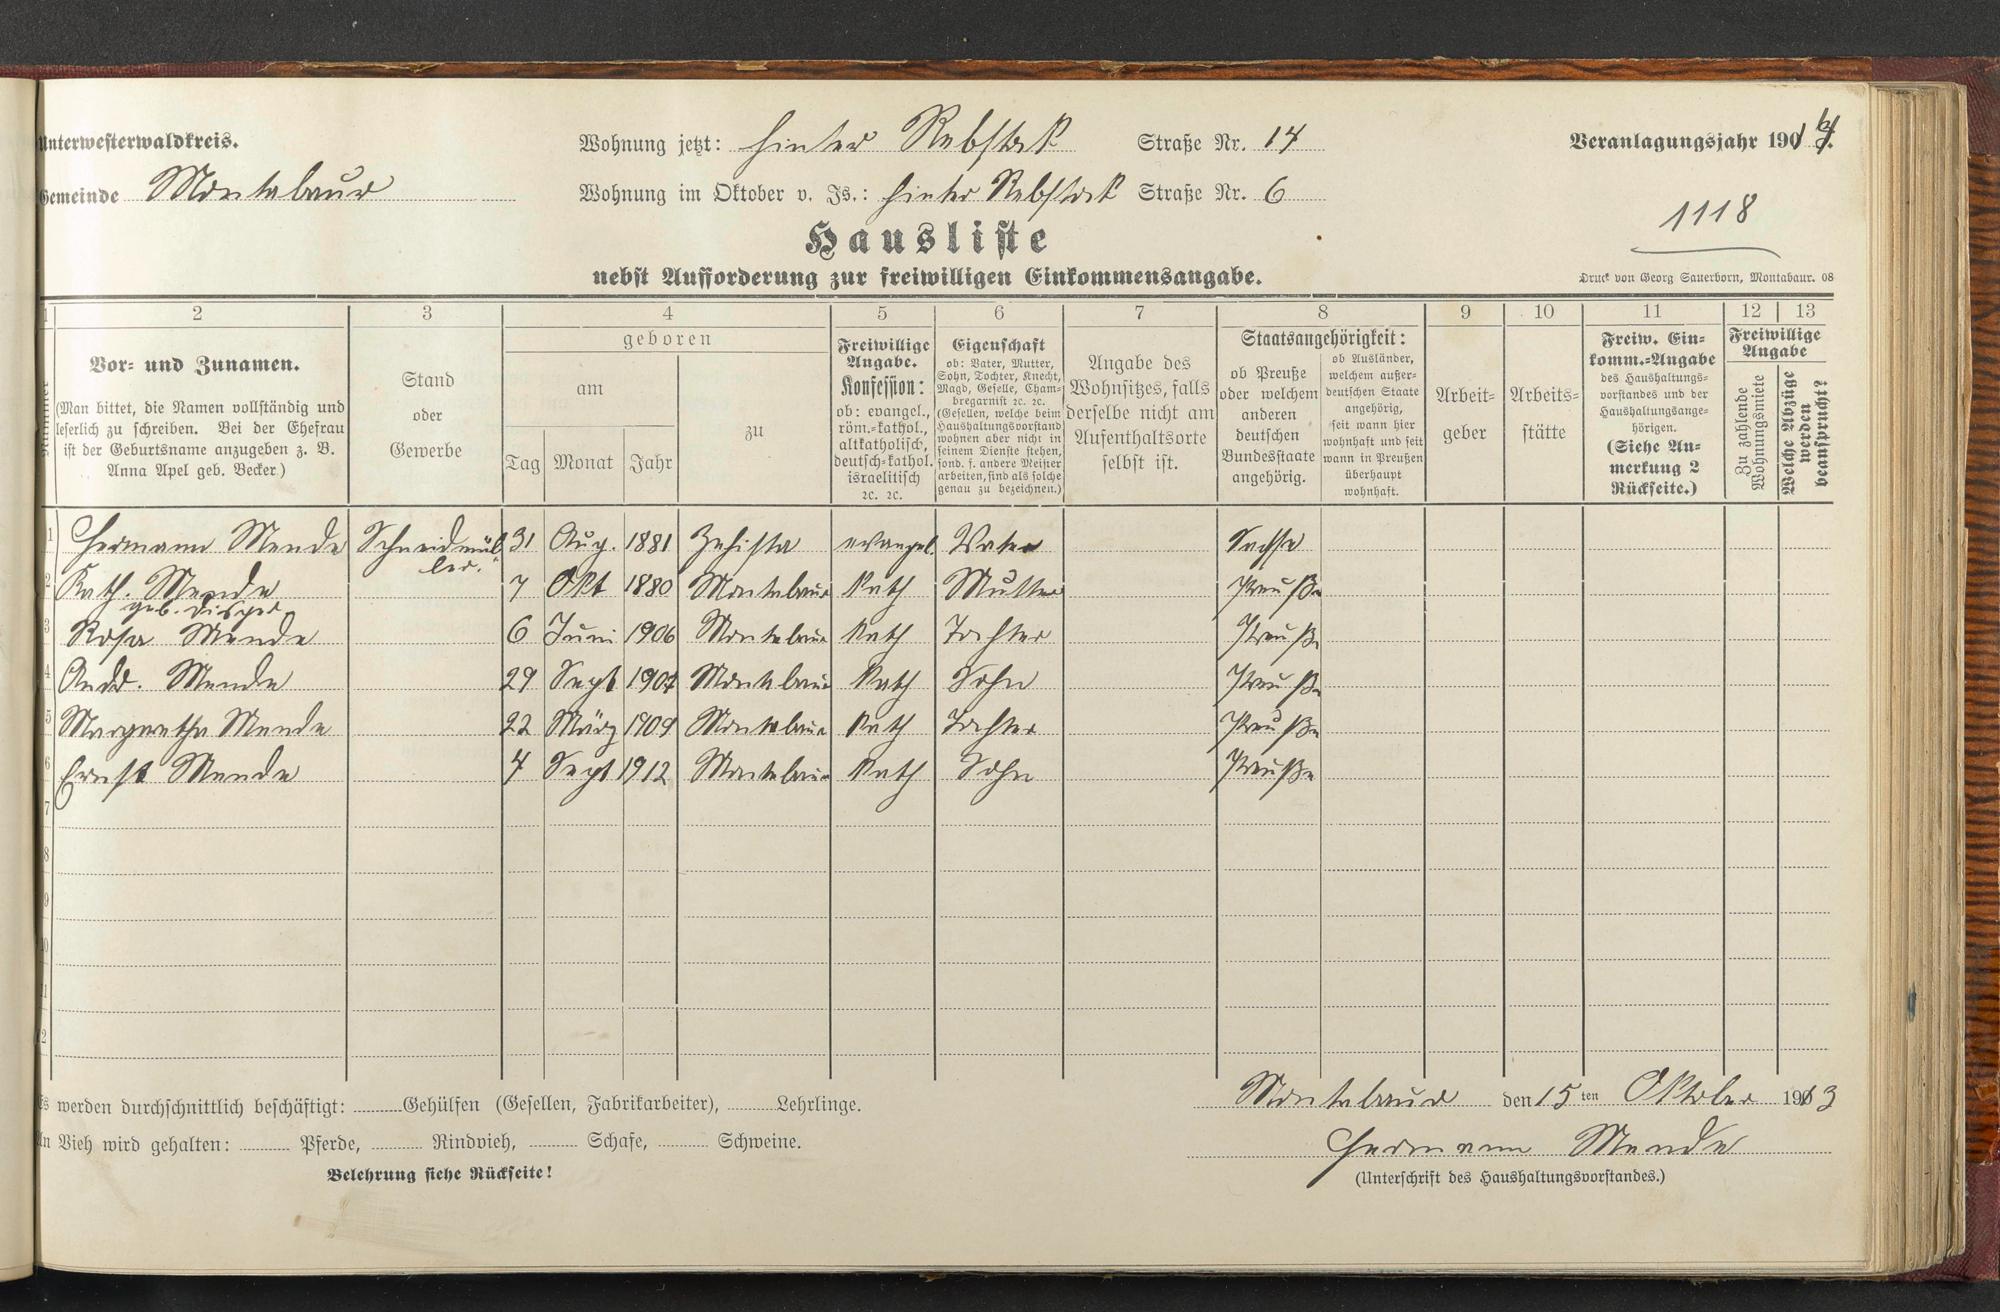 Unterwesterwaldkreis.
Gemeinde Montabaur
Wohnung jetzt: hinter Rebstok Straße Nr. 14
Wohnung im Oktober v. Js.: hinter Rebstok Straße Nr. 6
Veranlagungsjahr 191
1118
Hausliste
nebst Aufforderung zur freiwilligen Einkommensangabe.
Druck von Georg Sauerborn, Montabaur. 08
1 2 3 4 5 6 7 8 9 10 11 12 13
Nummer
Vor- und Zunamen.
(Man bittet, die Namen vollständig und
leserlich zu schreiben. Bei der Ehefrau
ist der Geburtsname anzugeben z. B.
Anna Apel geb. Becker)
Stand
oder
Gewerbe
geboren
am
Tag Monat Jahr
zu
Freiwillige
Angabe.
Konfession:
ob: evangel.,
röm.-kathol.,
altkatholisch,
deutsch-kathol.
israelitisch
ꝛc. ꝛc.
Eigenschaft
ob: Vater, Mutter,
Sohn, Tochter, Knecht,
Magd, Geselle, Cham-
bregarnist ꝛc. ꝛc.
(Gesellen, welche beim
Haushaltungsvorstand
wohnen aber nicht in
seinem Dienste stehen,
sond. f. andere Meister
arbeiten, sind als solche
genau zu bezeichnen.)
Angabe des
Wohnsitzes, falls
derselbe nicht am
Aufenthaltsorte
selbst ist.
Staatsangehörigkeit:
ob Preuße
oder welchem
anderen
deutschen
Bundesstaate
angehörig.
ob Ausländer,
welchem außer-
deutschen Staate
angehörig,
seit wann hier
wohnhaft und seit
wann in Preußen
überhaupt
wohnhaft.
Arbeit-
geber
Arbeits-
stätte
Freiw. Ein-
komm.-Angabe
des Haushaltungs-
vorstandes und der
Haushaltungsange-
hörigen.
(Siehe An-
merkung 2
Rückseite.)
Freiwillige
Angabe
Zu zahlende
Wohnungsmiete
Welche Abzüge
werden
beansprucht?
1 Hermann Mende Schneidmül 31 Aug. 1881 Zehista evangel. Vater Sachse
ler.
2 Kath. Mende 7 Okt 1880 Montabaur Kath Mutter Preuße
geb. Disper
3 Rosa Mende 6 Juni 1906 Montabaur Kath Tochter Preuße
4 Mende 29 Sept 1907 Montabaur Kath Sohn Preuße
5 Margretha Mende 22 März 1909 Montabaur Kath Tochter Preuße
6 Ernst Mende 4 Sept 1912 Montabaur Kath Sohn Preuße
7
8
9
10
11
12
Es werden durchschnittlich beschäftigt: Gehülfen (Gesellen, Fabrikarbeiter), Lehrlinge.
An Vieh wird gehalten: Pferde, Rindvieh, Schafe, Schweine.
Belehrung siehe Rückseite!
Montabaur den 15 ten Oktober 1913
Hermann Mende
(Unterschrift des Haushaltungsvorstandes.)